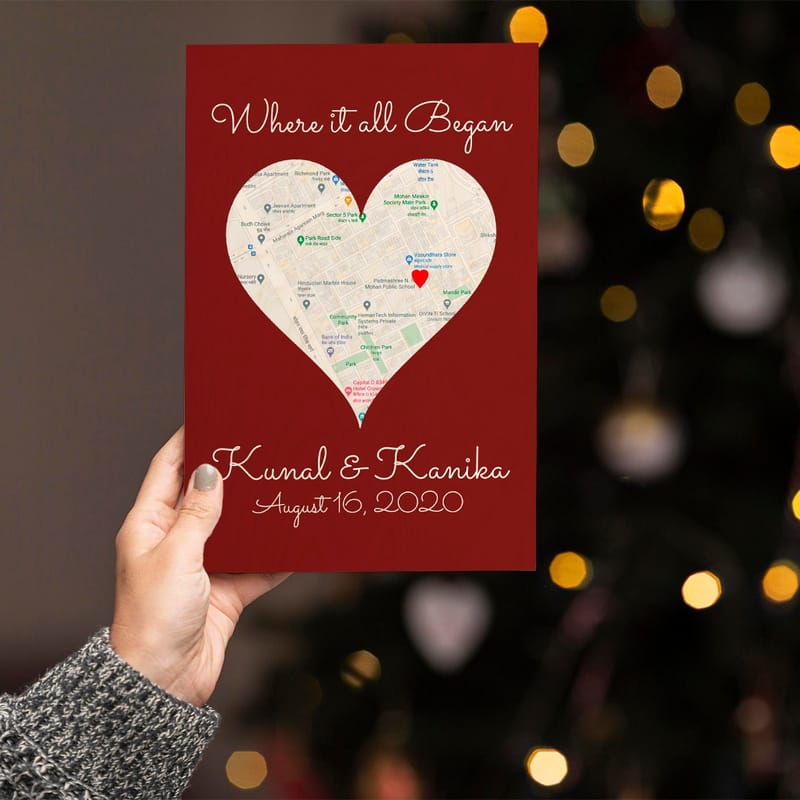 Where it all Began
Richmond Park
Apartment
Water
Tank
Jeevan Apartment
Mohan Meakin
Society Main Park
Sector 5 Park
Budh Chowk
Maharaja Agarsain Marg
Park Road Side
Vasundhara Store
Nursery
Hindustan Marble House
Padmashree N.
Mohan Public School
Mandir Park
Community
Park
HemanTech Information
Systems Private
Bank of India
Children Park
Park
Capital O
Hotel
Kunal & Kanika
August 16, 2020